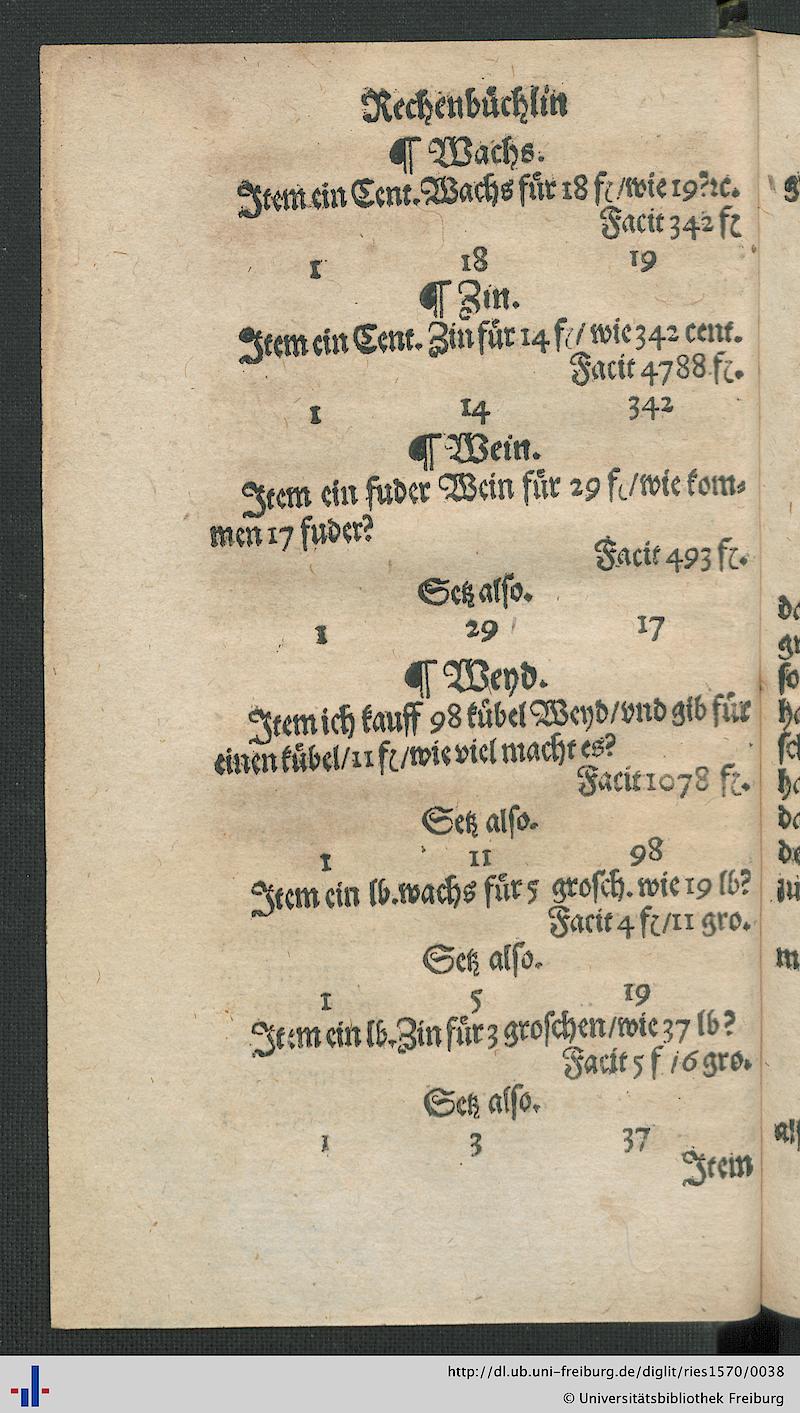 Rechenbüchlin
¶ Wachs.
Item ein Cent. Wachs für 18 fl/wie 19? ꝛc.
Facit 342 fl
1 18 19
¶ Zin.
Item ein Cent. Zin für 14 fl/ wie 342 cent.
Facit 4788 fl.
1 14 342
¶ Wein.
Item ein fuder Wein für 29 fl/wie kom⸗
men 17 fuder?
Facit 493 fl.
Setz also.
1 29 17
¶ Weyd.
Item ich kauff 98 kübel Weyd/vnd gib für
einen kübel/11 fl/wie viel macht es?
Facit 1078 fl.
Setz also.
1 11 98
Item ein lb. wachs für 5 grosch. wie 19 lb?
Facit 4 fl/11 gro.
Setz also.
1 5 19
Item ein lb. Zin für 3 groschen/wie 37 lb?
Facit 5 f /6 gro.
Setz also.
1 3 37
Item
http://dl.ub.uni-freiburg.de/diglit/ries1570/0038
© Universitätsbibliothek Freiburg